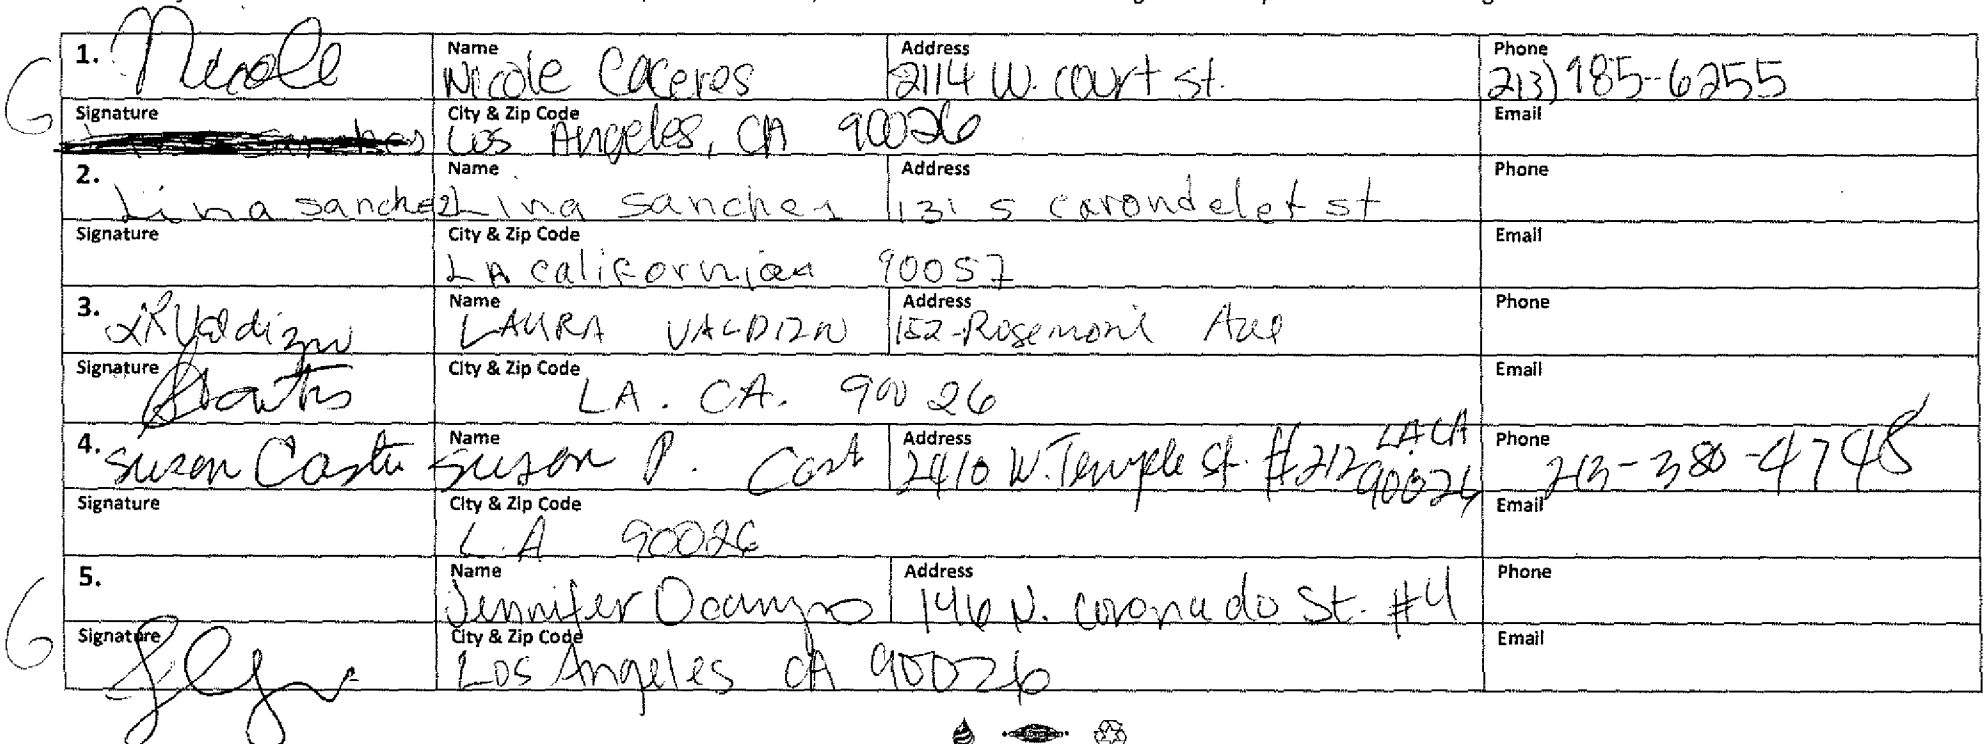 1. Nicole Name Nicole Caceres Address 2114 W. court st. Phone 213) 985-6255
Signature sanches City & Zip Code Los Angeles, CA 90026 Email
2. Lina sanchez Name Lina sanchez Address 131 s carondelet st Phone
Signature City & Zip Code LA californiaa 90057 Email
3. Name LAURA VALDIZN Address 152-Rosemont Ave Phone
Signature City & Zip Code LA. CA. 90026 Email
4. Susan Name Susan P. Address 2410 W. Temple St. #212 LA CA 90026 Phone 213-380-4748
Signature City & Zip Code L.A 90026 Email
5. Name Jennifer Ocampo Address 146 N. coronado St. #4 Phone
Signature City & Zip Code Los Angeles CA 90026 Email